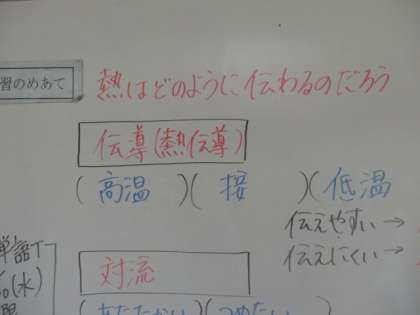 習のめあて
熱はどのように伝わるのだろう
伝導(熱伝導)
(高温)(接)(低温
伝えやすい→
伝えにくい→
対流
(あたたかい)(つめたい
単語テ
(水)